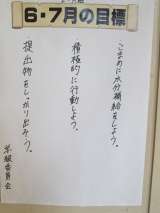 6・7月の目標
こまめに水分補給をしよう。
積極的に行動しよう。
提出物をしっかり出そう。
学級委員会